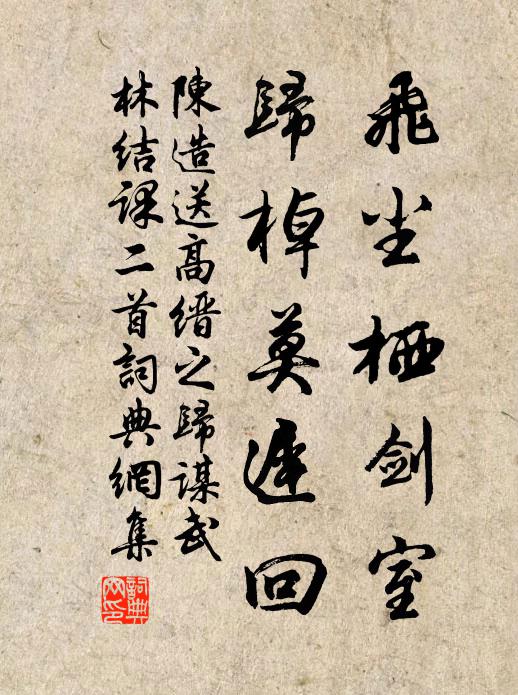 飛尘栖剑室
歸棹莫遲回
陳造送高缙之歸謀武
林结课二首詞典網集
詞典網印